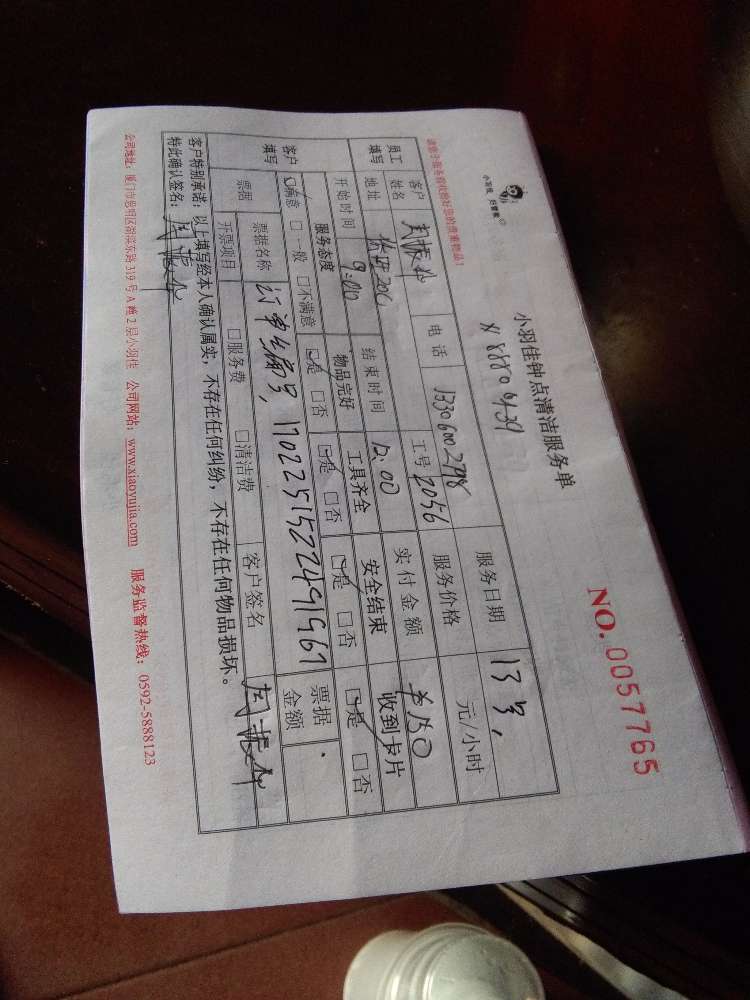 小羽佳 好管家
小羽佳钟点清洁服务单
NO. 0057765
请您于服务前收捡好您的贵重物品!
员工填写 客户姓名 电话 服务日期 13号,
地址 工号 2056 服务价格 元/小时
开始时间 9:00 结束时间 12:00 实付金额 150
客户填写 服务态度 物品完好 工具齐全 安全结束 收到卡片
☑满意 □一般 □不满意 ☑是 □否 ☑是 □否 ☑是 □否 ☑是 □否
票据 票据名称 订单编号, 票据金额
开票项目 □服务费 □清洁费 客户签名 周振
客户特别承诺:以上填写经本人确认属实,不存在任何纠纷,不存在任何物品损坏。
特此确认签名: 周振
公司地址:厦门市思明区湖滨东路 319 号 A 栋 2 层小羽佳 公司网站:www.xiaoyujia.com 服务监督热线:0592-5888123